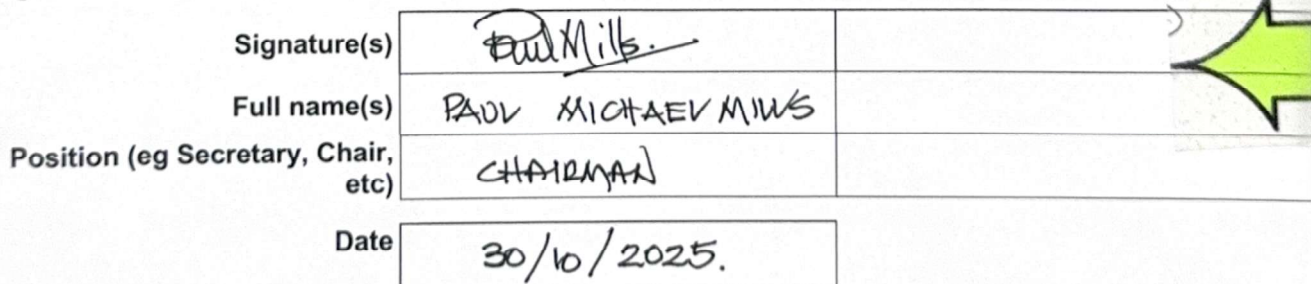 Signature(s) Paul Mills.
Full name(s) PAUL MICHAEL MILLS
Position (eg Secretary, Chair,
etc) CHAIRMAN
Date 30/10/2025.